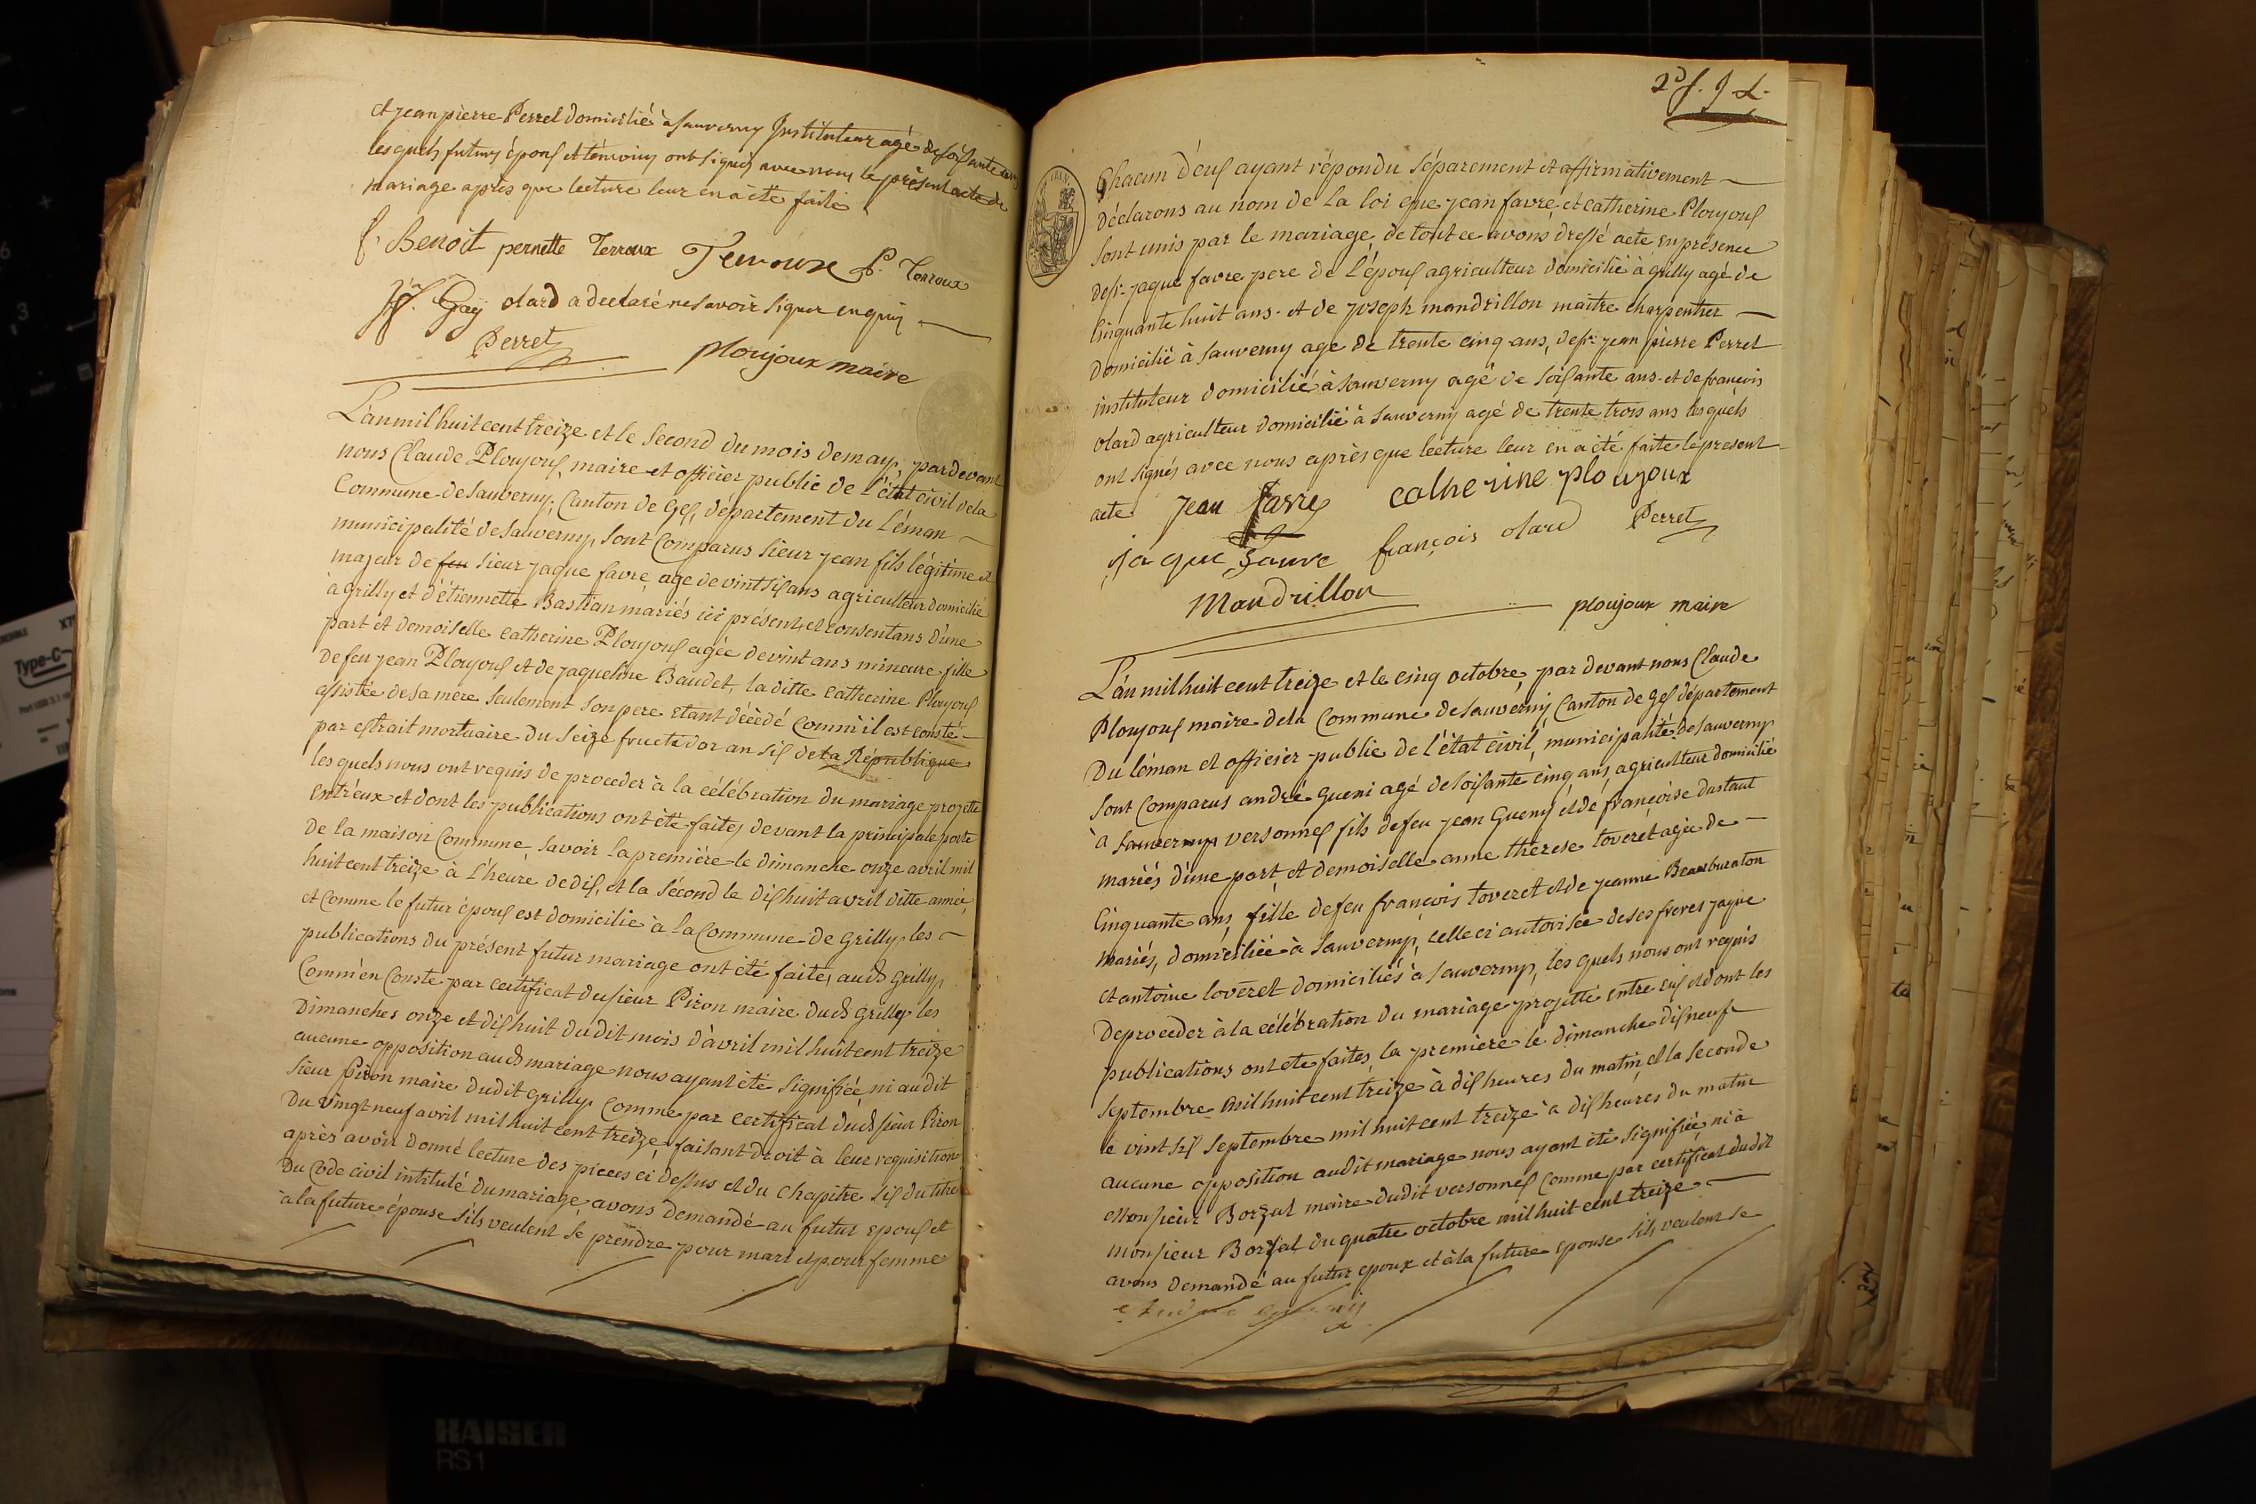 et jean pierre Perret domicilié à Sauverny Instituteur agé de soissante ans
les quels futurs épous et témoins ont signés avec nous le présent acte de
mariage après que lecture leur en a été faite
Benoit pernette Terroux Terroux P. Terroux
Gay olard a declaré ne savoir signer enquis
Perret ploujoux maire
L'an mil huit cent treize et le second du mois de may, pardevant
nous Claude Ploujous maire et officier public de l'état civil de la
Commune de Sauverny, Canton de Gex, département du Léman
municipalité de Sauverny, sont Comparus sieur jean fils légitime et
majeur de feu sieur jaque favre age de vint sis ans agriculteur domicilié
à Grilly et d'étiennette Bastian mariés ici présents et consentans d'une
part et demoiselle catherine Ploujous agée de vint ans mineure fille
de feu jean Ploujous et de jaqueline Baudet, la ditte catherine Ploujous
assistée de sa mere seulement son pere étant décèdé comm'il est consté
par estrait mortuaire du seize fructidor an sis de la République
les quels nous ont requis de proceder à la célébration du mariage projetté
entr'eux et dont les publications ont été faites devant la principale porte
de la maison Commune savoir la première le dimanche onze avril mil
huit cent treize à l'heure de dis, et la sécond le dis huit avril ditte année,
et comme le futur épous est domicilié à la Commune de Grilly les
publications du présent futur mariage ont été faites aud Grilly
Comm'en Conste par certificat du sieur Piron maire dud Grilly les
Dimanches onze et dis huit dudit mois d'avril mil huit cent treize
aucune opposition aud mariage nous ayant été signifiée ni audit
sieur Piron maire dudit Grilly comme par certificat dud sieur Piron
du vingt neuf avril mil huit cent treize, faisant droit à leur requisition
après avoir donné lecture des pieces ci dessus et du chapitre sis du titre
du code civil intitulé du mariage, avons demandé au futur epous et
à la future épouse s'ils veulent se prendre pour mari et pour femme
Chacun d'eus ayant répondu séparement et affirmativement
déclarons au nom de la loi que jean favre et catherine Ploujous
sont unis par le mariage de tout ce avons dressé acte en présence
de sr jaque favre pere de l'épous agriculteur domicilié à Grilly agé de
cinquante huit ans. et de joseph mandrillon maitre charpentier
domicilié à Sauverny age de trente cinq ans, de sr jean pierre Perret
instituteur domicilié à Sauverny agé de soisante ans. et de françois
olard agriculteur domicilié à Sauverny agé de trente trois ans les quels
ont signés avec nous après que lecture leur en a été faite le present
acte Jean favre catherine ploujoux
jaque favre françois olard Perret
Mandrillon ploujoux maire
L'an mil huit cent treize et le cinq octobre par devant nous Claude
Ploujous maire de la Commune de Sauverny Canton de Gex département
du léman et officier public de l'état civil, municipalité de Sauverny
sont Comparus andré gueni agé de soisante cinq ans, agriculteur domicilié
à versonnex fils de feu jean Gueny et de françoise dustaut
mariés d'une part et demoiselle anne thérese loveret agée de
cinquante ans, fille de feu françois loveret et de jeanne buraton
mariés, domiciliée à Sauverny, celle ci autorisée de ses freres jaque
et antoine loveret domiciliés à Sauverny, les quels nous ont requis
de proceder à la célébration du mariage projetté entre eus et dont les
publications ont été faites, la premiere le dimanche dis neuf
septembre mil huit cent treize à dis heures du matin, et la seconde
le vint sis septembre mil huit cent treize à dis heures du matin
aucune opposition audit mariage nous ayant été signifiée ni à
Monsieur maire dudit versonnex comme par certificat dudit
monsieur du quatre octobre mil huit cent treize
avons demandé au futur epoux et à la future epouse s'ils veulent se
KAISER
RS1
Type-C